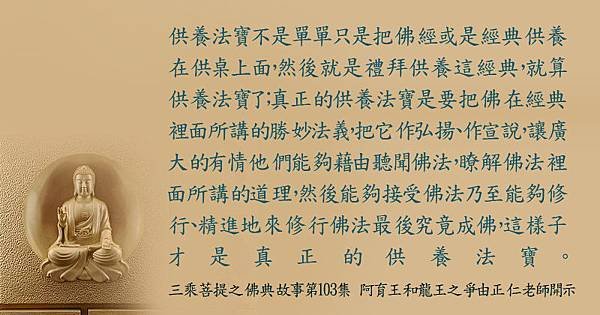 供養法寶不是單單只是把佛經或是經典供養
在供桌上面,然後就是禮拜供養這經典,就算
供養法寶了;真正的供養法寶是要把佛在經典
裡面所講的勝妙法義,把它作弘揚、作宣說,讓廣
大的有情他們能夠藉由聽聞佛法,瞭解佛法裡
面所講的道理,然後能夠接受佛法乃至能夠修
行、精進地來修行佛法最後究竟成佛,這樣子
才是真正的供養法寶。
三乘菩提之佛典故事第103集 阿育王和龍王之爭由正仁老師開示